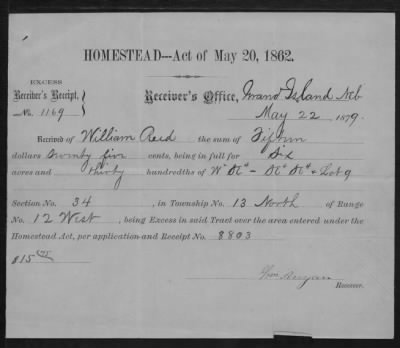 HOMESTEAD—Act of May 20, 1862.
EXCESS
Receiver's Receipt,
No. 1169
Receiver's Office, Grand Island Neb
May 22 1879.
Received of William Reid the sum of Fifteen
dollars Twenty five cents, being in full for Six
acres and Thirty hundredths of
Section No. 34, in Township No. 13 North of Range
No. 12 West, being Excess in said Tract over the area entered under
Homestead Act, per application and Receipt No. 8803
$15
Wm Anyan
Receiver.